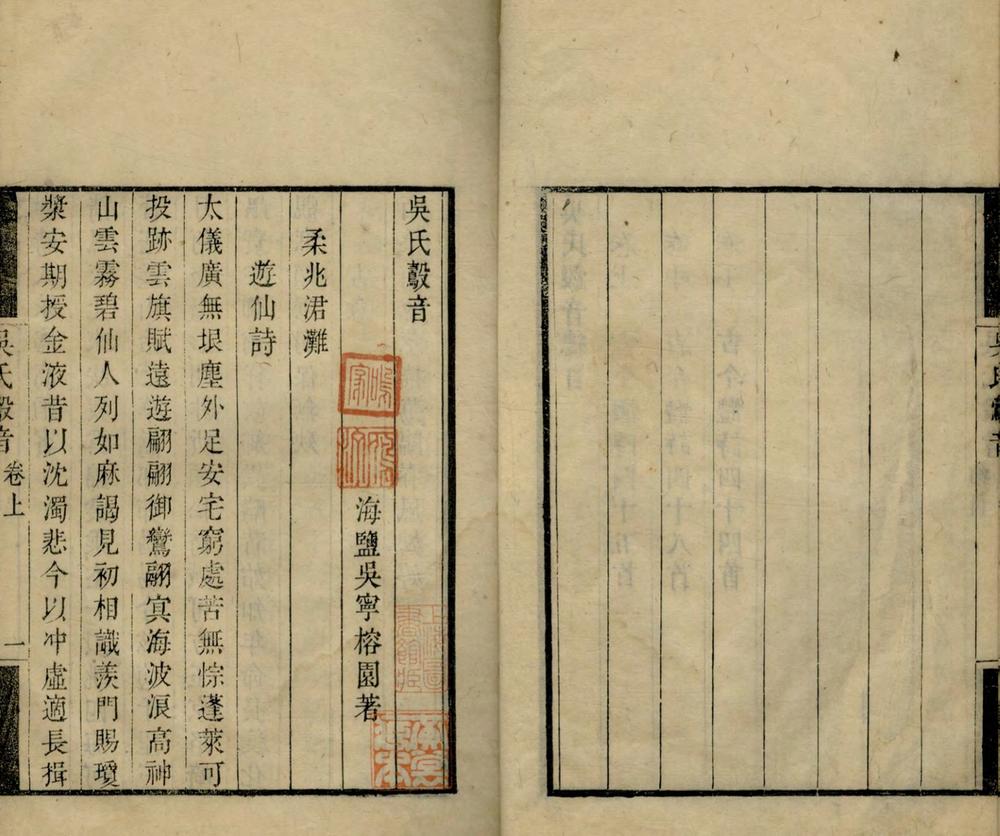 吳氏鷇音
海鹽吳寧榕園著
柔兆涒灘
遊仙詩
太儀廣無垠塵外足安宅窮處苦無悰蓬萊可
投跡雲旗賦遠遊翩翩御鸞翮寘海波浪高神
山雲霧碧仙人列如麻謁見初相識羨門賜瓊
漿安期授金液昔以沈濁悲今以冲虛適長揖
吳氏鷇音 卷上 一